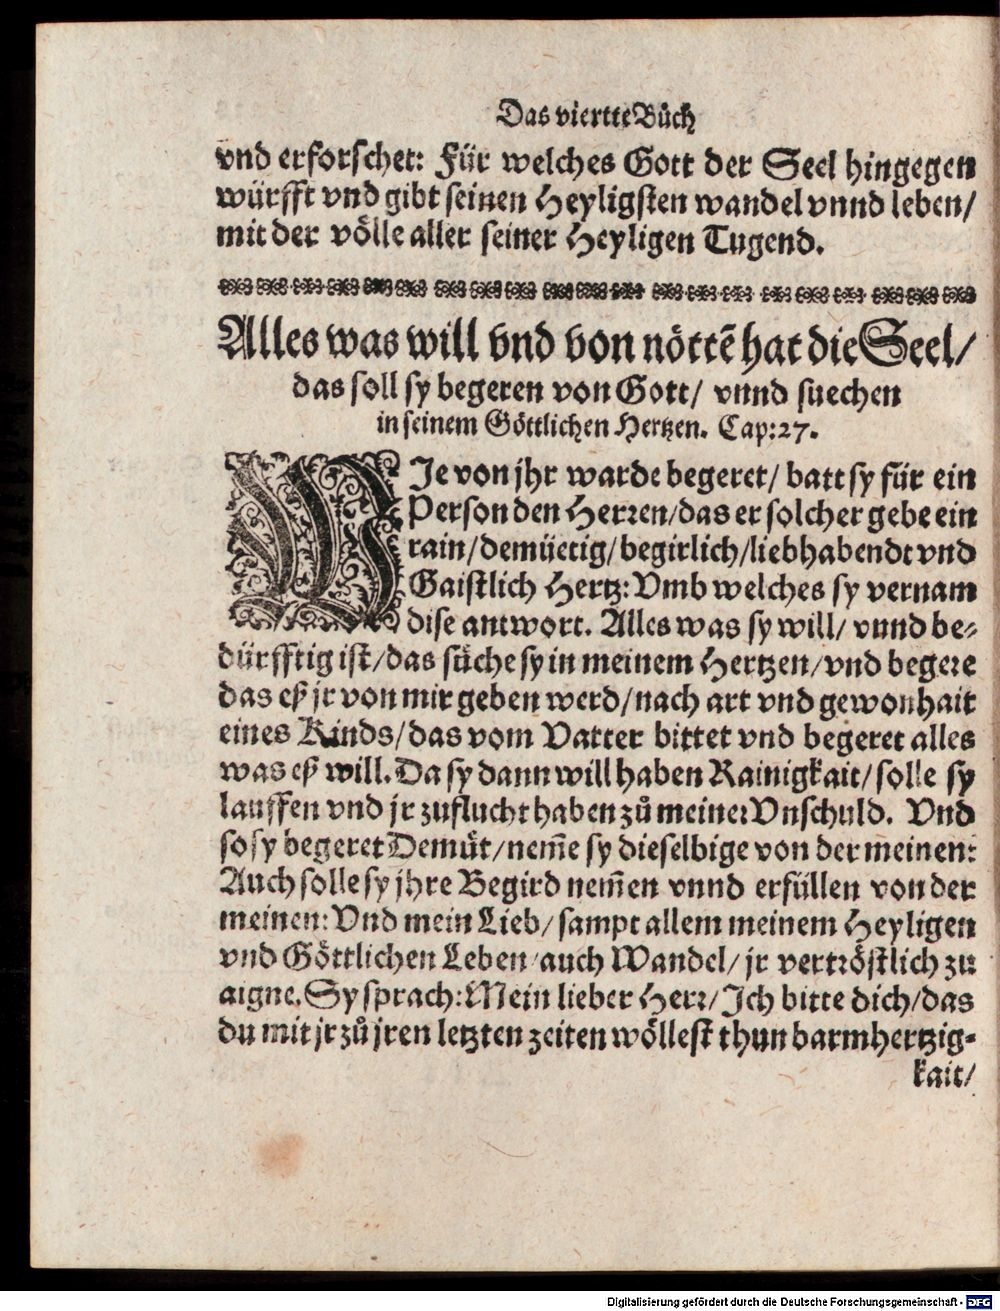 Das viertte Bůch
vnd erforschet: Für welches Gott der Seel hingegen
würfft vnd gibt seinen Heyligsten wandel vnnd leben/
mit der völle aller seiner Heyligen Tugend.
Alles was will vnd von nöttē hat die Seel/
das soll sy begeren von Gott/ vnnd suechen
in seinem Göttlichen Hertzen. Cap:27.
WJe von jhr warde begeret/ batt sy für ein
Person den Herren/das er solcher gebe ein
rain/demüetig/begirlich/liebhabendt vnd
Gaistlich Hertz: Vmb welches sy vernam
dise antwort. Alles was sy will/ vnnd be-
dürfftig ist/das sůche sy in meinem Hertzen/vnd begere
das eß jr von mir geben werd/nach art vnd gewonhait
eines Kinds/das vom Vatter bittet vnd begeret alles
was eß will. Da sy dann will haben Rainigkait/solle sy
lauffen vnd jr zuflucht haben zů meiner Vnschuld. Vnd
so sy begeret Demůt/nem̄e sy dieselbige von der meinen:
Auch solle sy jhre Begird nem̄en vnnd erfüllen von der
meinen: Vnd mein Lieb/sampt allem meinem Heyligen
vnd Göttlichen Leben/auch Wandel/ jr vertröstlich zu
aigne. Sy sprach: Mein lieber Herr/Jch bitte dich/das
du mit jr zů jren letzten zeiten wöllest thun barmhertzig-
kait/
Digitalisierung gefördert durch die Deutsche Forschungsgemeinschaft - DFG